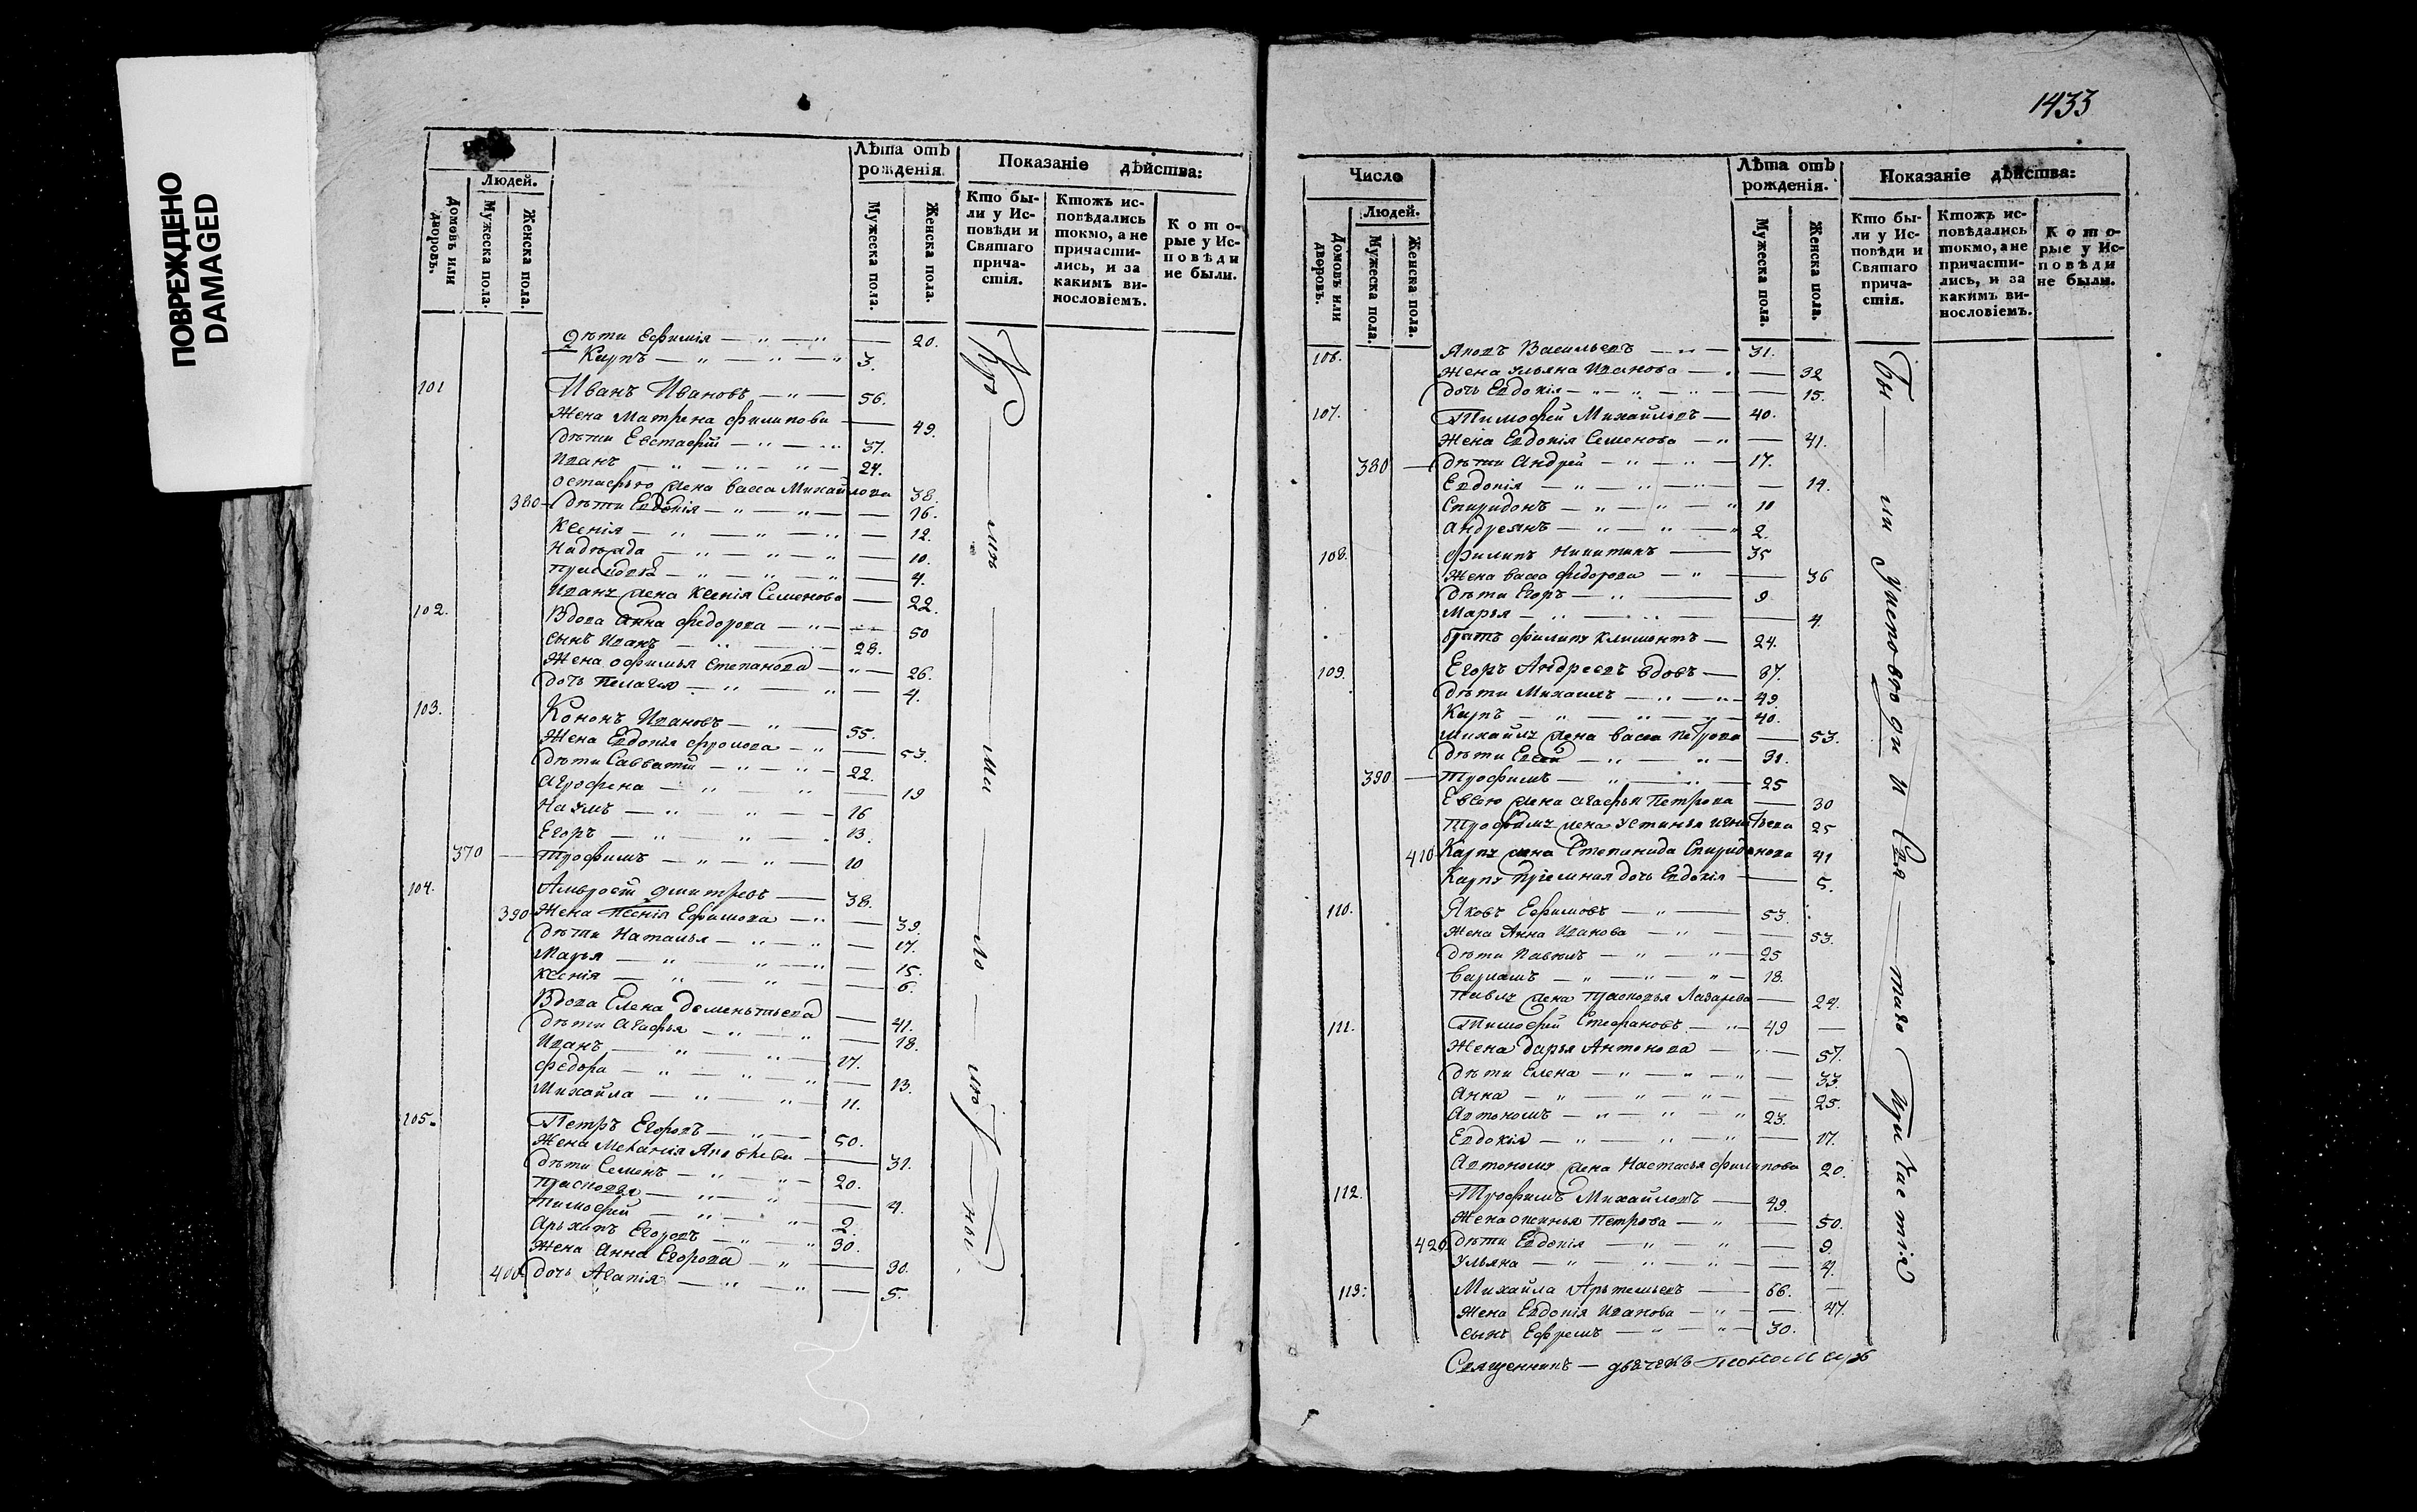 ПОВРЕЖДЕНО
DAMAGED
Людей.
Домовъ или дворовъ.
Мужеска пола.
Женска пола.
Лѣта отъ рожденія.
Мужеска пола.
Женска пола.
Показаніе дѣйства:
Кто были у Исповѣди и Святаго причастія.
Ктожъ исповѣдались токмо, а не причастились, и за какимъ винословіемъ.
Которые у Исповѣди не были.
Дѣти Ефимія 20.
Карпъ 3.
101 Иванъ Ивановъ 56.
Жена Матрена Филипова 49.
Дѣти Евстафій 37.
Иванъ 24.
Остафью жена Васса Михайлова 38.
380 Дѣти Евдокія 16.
Ксенія 12.
Надѣжда 10.
4.
Иванъ жена Ксенія Семенова 22.
102. Вдова Анна Федорова 50
Сынъ Иванъ 28.
Жена Офимья Степанова 26.
Дочь Пелагея 4.
103. Кононъ Ивановъ 55.
Жена Евдокія Фролова 53.
Дѣти Савватій 22.
Агрофена 19
Наумъ 16
Егоръ 13.
370 Трофимъ 10
104. Амвросій Дмитревъ 38.
390 Жена Ксенія Ефимова 39.
Дѣти Наталья 17.
Марья 15.
Ксенія 6.
Вдова Елена Дементьева 41.
Дѣти Агафья 18.
Иванъ 17.
Федора 13.
Михайла 11.
105. Петръ Егоровъ 50.
Жена Меланія Яковлева 31.
Дѣти Семенъ 20.
Прасковья 4.
Тимофей 2.
Архипъ Егоровъ 30.
Жена Анна Егорова 30.
400 Дочь Агапія 5.
1433
Число
Людей.
Домовъ или дворовъ.
Мужеска пола.
Женска пола.
Лѣта отъ рожденія.
Мужеска пола.
Женска пола.
Показаніе дѣйства:
Кто были у Исповѣди и Святаго причастія.
Ктожъ исповѣдались токмо, а не причастились, и за какимъ винословіемъ.
Которые у Исповѣди не были.
Были у Исповѣди и Святаго Причастія
106. Яковъ Васильевъ 31.
Жена Ульяна Иванова 32
Дочь Евдокія 15.
107. Тимофей Михайловъ 40.
Жена Евдокія Семенова 41.
380 Дѣти Андрей 17.
Евдокія 14.
Спиридонъ 10
Андреянъ 2.
108. Филипъ Никитинъ 35
Жена Васса Федорова 36
Дѣти Егоръ 9
Марья 4.
Братъ Филипу Климентъ 24.
109. Егоръ Андреевъ вдовъ 87.
Дѣти Михаилъ 49.
Карпъ 40.
Михайлы жена Васса Петрова 53.
Дѣти Евсей 31.
390 Трофимъ 25
Евсею жена Агафья Петрова 30
Трофиму жена Устинья Игнатьева 25
410 Карпу жена Степанида Спиридонова 41
Карпу приемная дочь Евдокія 5.
110. Яковъ Ефимовъ 53.
Жена Анна Иванова 53.
Дѣти Павелъ 25
Варламъ 18.
Павлу жена Прасковья Лазарева 24.
111. Тимофей Стефановъ 49
Жена Дарья Антонова 57.
Дѣти Елена 33.
Анна 25.
Автономъ 23.
Евдокія 17.
Автоному жена Настасья Филипова 20.
112. Трофимъ Михайловъ 49.
Жена Ксинья Петрова 50.
420 Дѣти Евдокія 9.
Ульяна 4.
113. Михайла Артемьевъ 66.
Жена Евдокія Иванова 47.
Сынъ Ефремъ 30.
Священникъ — дьячекъ Пономарь